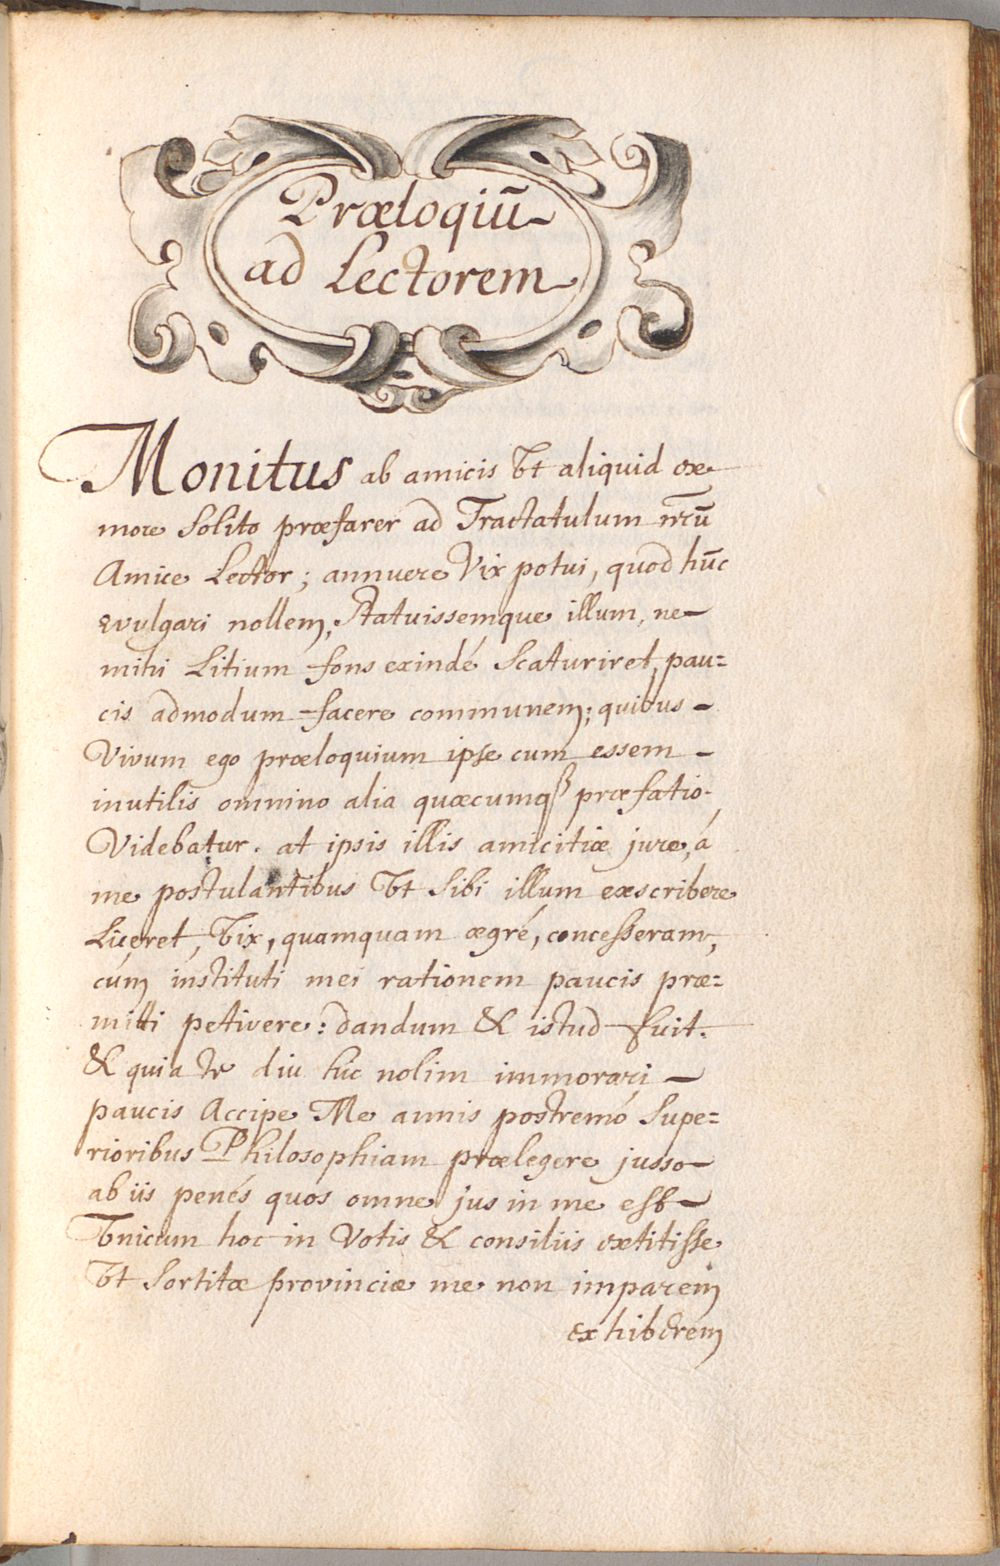 Præloqiū
ad Lectorem
Monitus ab amicis Vt aliquid ex
more Solito præfarer ad Tractatulum nr̄ū
Amice Lector; annuere Vix potui, quod hūc
evulgari nollem, Statuissemque illum, ne
mihi Litium fons exindé Scaturiret, pau=
cis admodum facere communem; quibus
Vivum ego præloquium ipse cum essem
inutilis omnino alia quæcumqꝫ præfatio
Videbatur. at ipsis illis amicitiæ jure, á
me postulantibus Vt Sibi illum exscribere
Liceret, Vix, quamquam ægré, concesseram,
cúm instituti mei rationem paucis præ=
mitti petivere: dandum & istud fuit.
& quia te diu hic nolim immorari
paucis Accipe Me annis postremó Supe=
rioribus Philosophiam prælegere jusso
ab iis penés quos omne jus in me est
Vnicum hoc in Votis & consiliis extitisse
Vt Sortitæ provinciæ me non imparem
exhiberem